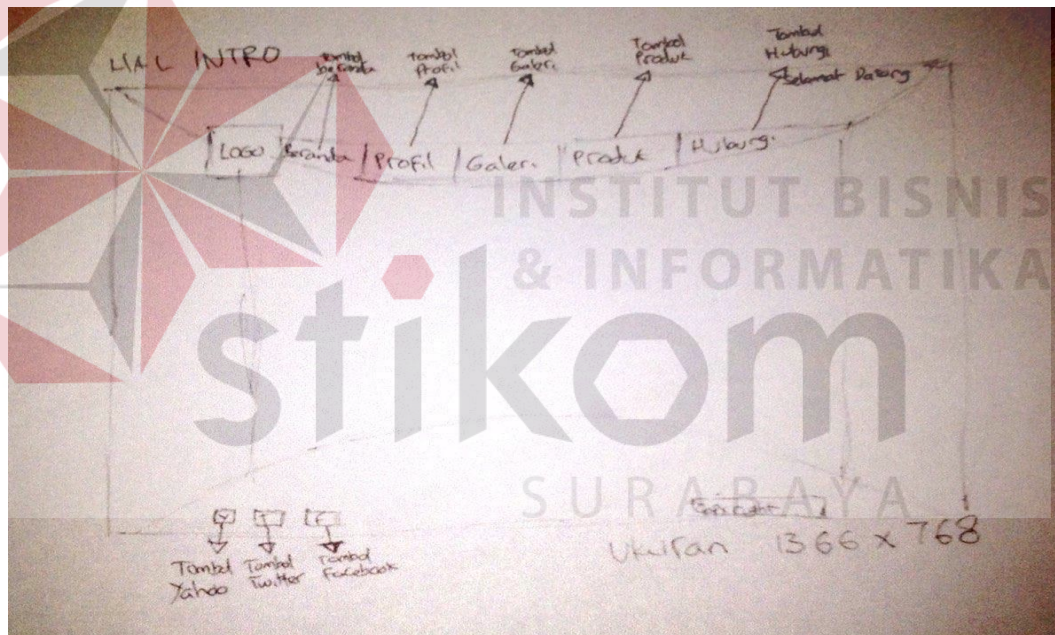 HAL INTRO
Tombol
beranda
Tombol
Profil
Tombol
Galeri
Tombol
Produk
Tombol
Hubungi
Selamat Datang
LOGO
Beranda
Profil
Galeri
Produk
Hubungi
INSTITUT BISNIS
& INFORMATIKA
stikom
SURABAYA
Y
T
F
Copyright
Ukuran 1366 x 768
Tombol
Yahoo
Tombol
Twitter
Tombol
Facebook